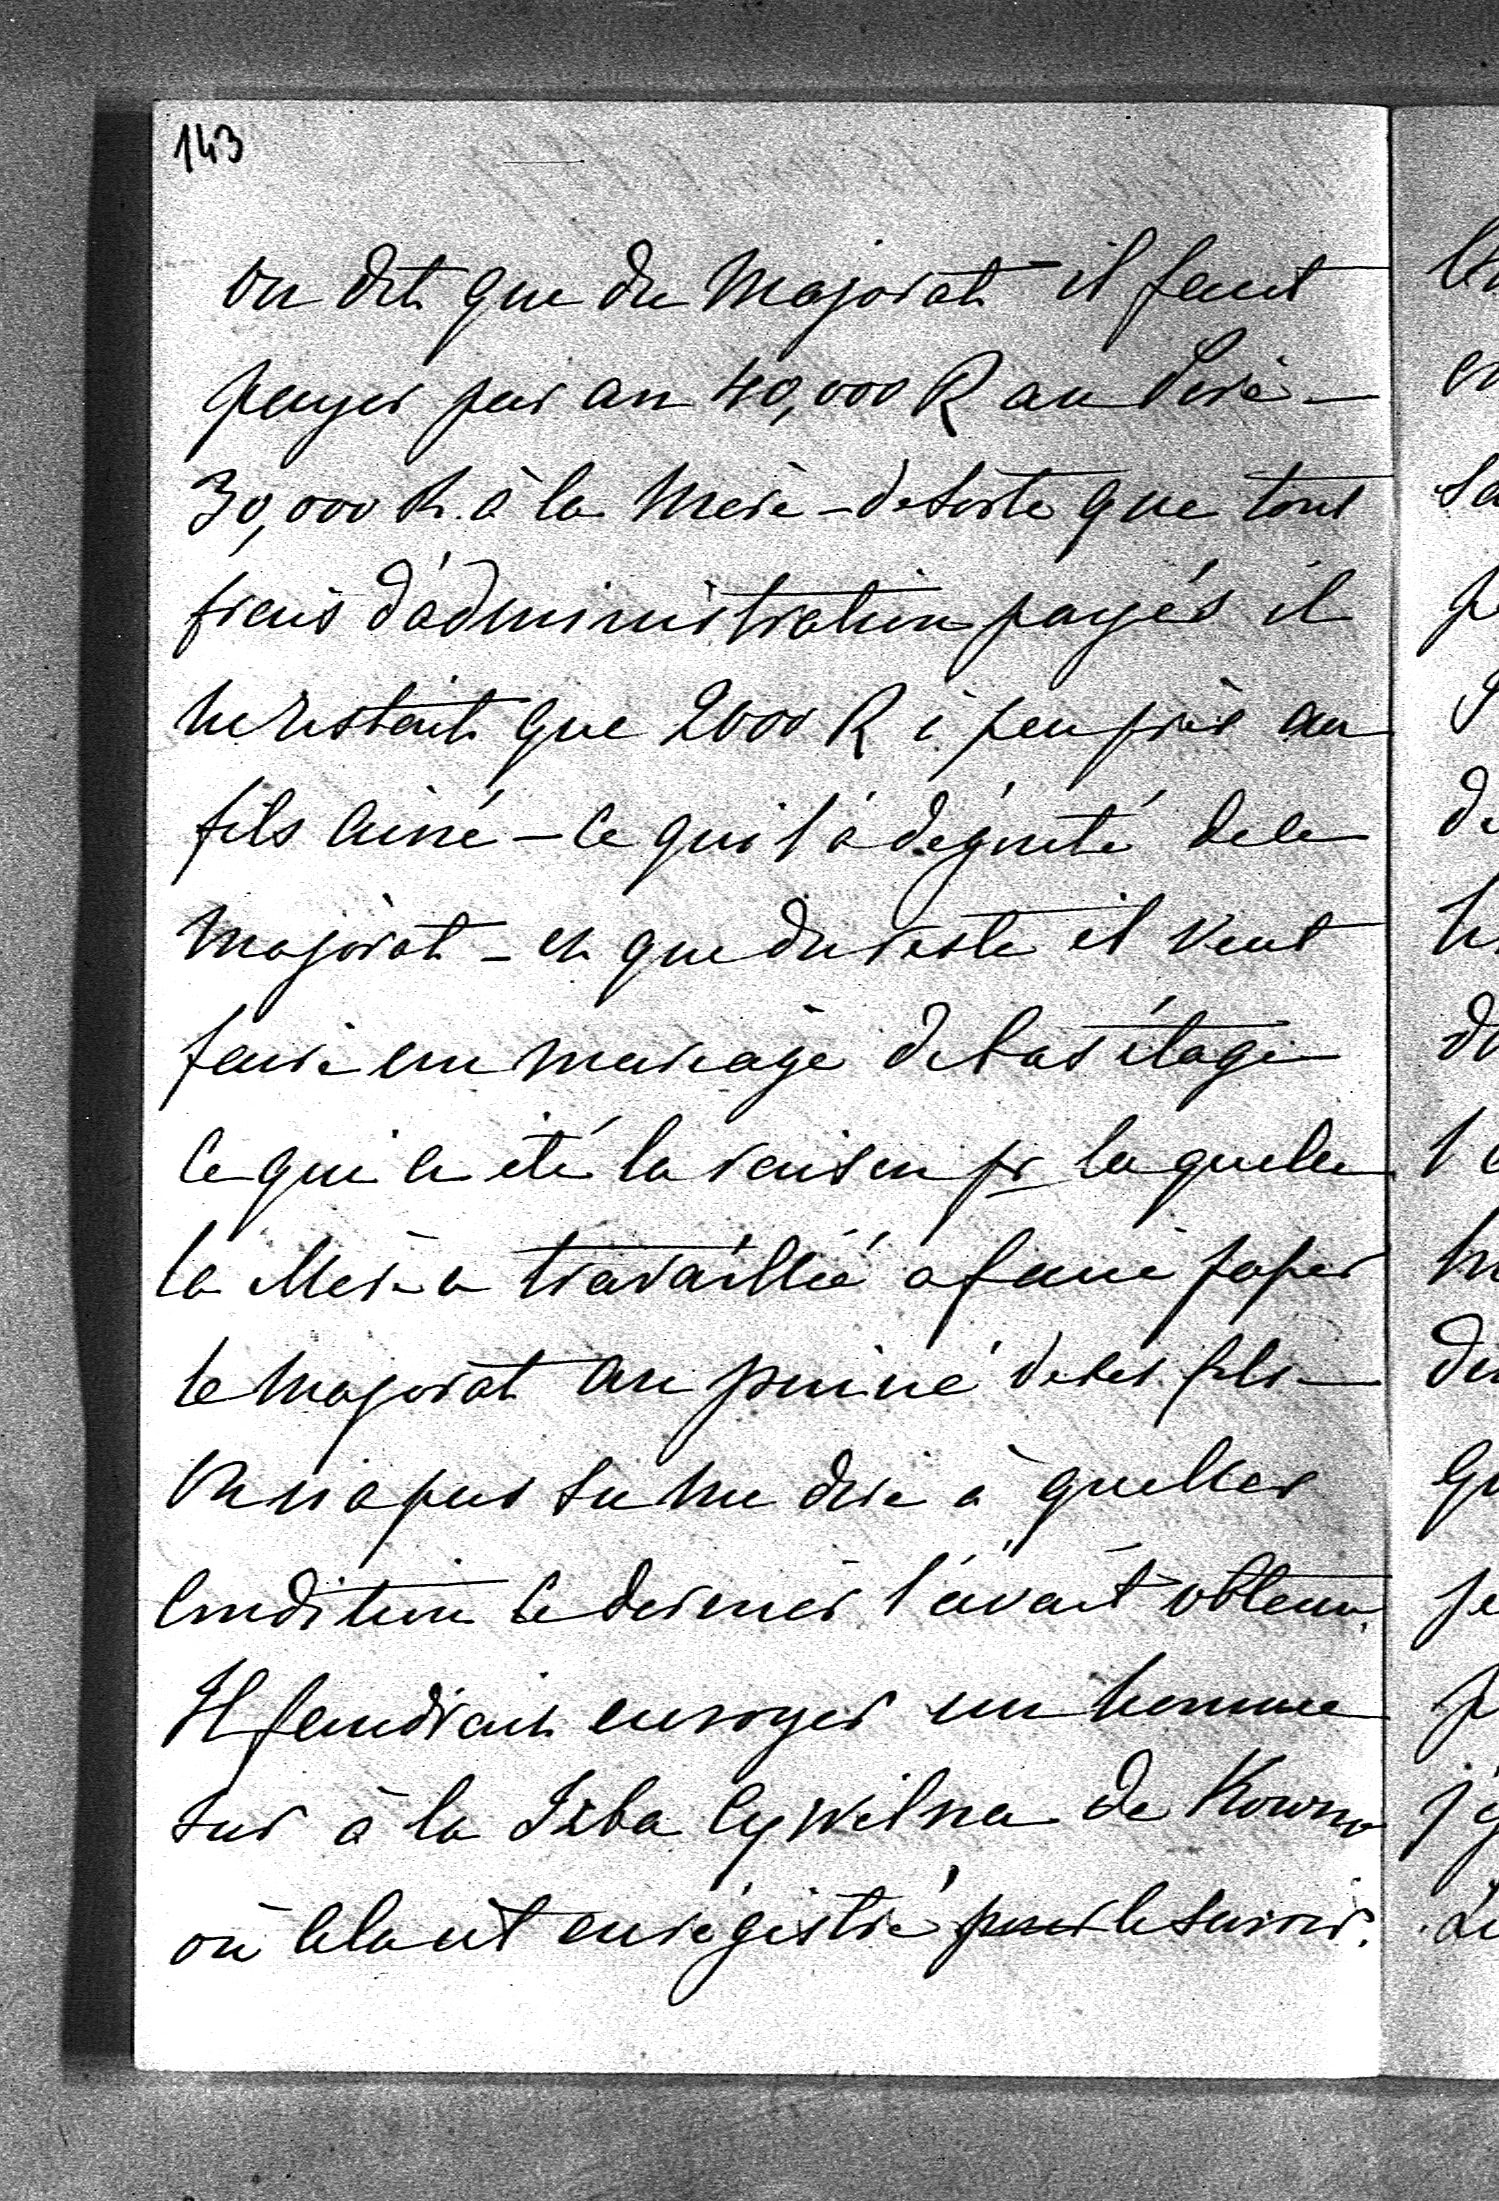 143
on dit que du Majorat il faut
payer par an 40,000 R au Père –
30,000 R. à la Mère – desorte que tout
frais d'administration payés il
ne restait que 2000 R à peu près au
fils ainé – ce qui l'a dégouté de le
Majorat – et que du reste il veut
faire un mariage de bas étage
ce qui a été la raison pr laquelle
la Mère a travaillié a faire passer
le Majorat au puiné de ses fils –
On n'a pas su me dire à quelles
condition ce dernier l'avait obtenu.
Il faudrait envoyer un homme
sur à la Izba Cywilna de Kowno
où cela est enrégistré pour le savoir.